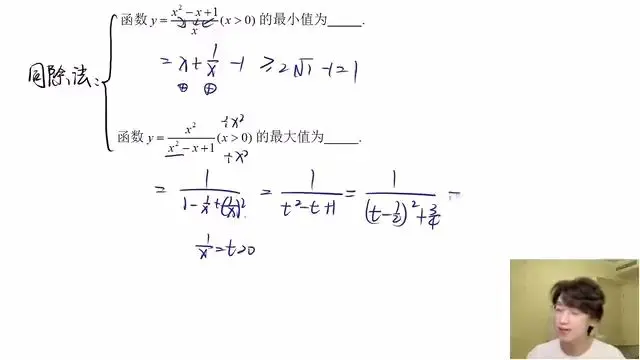 函数 y = \frac{x^2 - x + 1}{x} (x > 0) 的最小值为_____.
= x + \frac{1}{x} - 1 ≥ 2\sqrt{1} - 1 = 1
⊕ ⊕
同除法:
÷x²
函数 y = \frac{x^2}{x^2 - x + 1} (x > 0) 的最大值为_____.
÷x²
= \frac{1}{1 - \frac{1}{x} + (\frac{1}{x})^2} = \frac{1}{t^2 - t + 1} = \frac{1}{(t - \frac{1}{2})^2 + \frac{3}{4}} =
\frac{1}{x} = t > 0